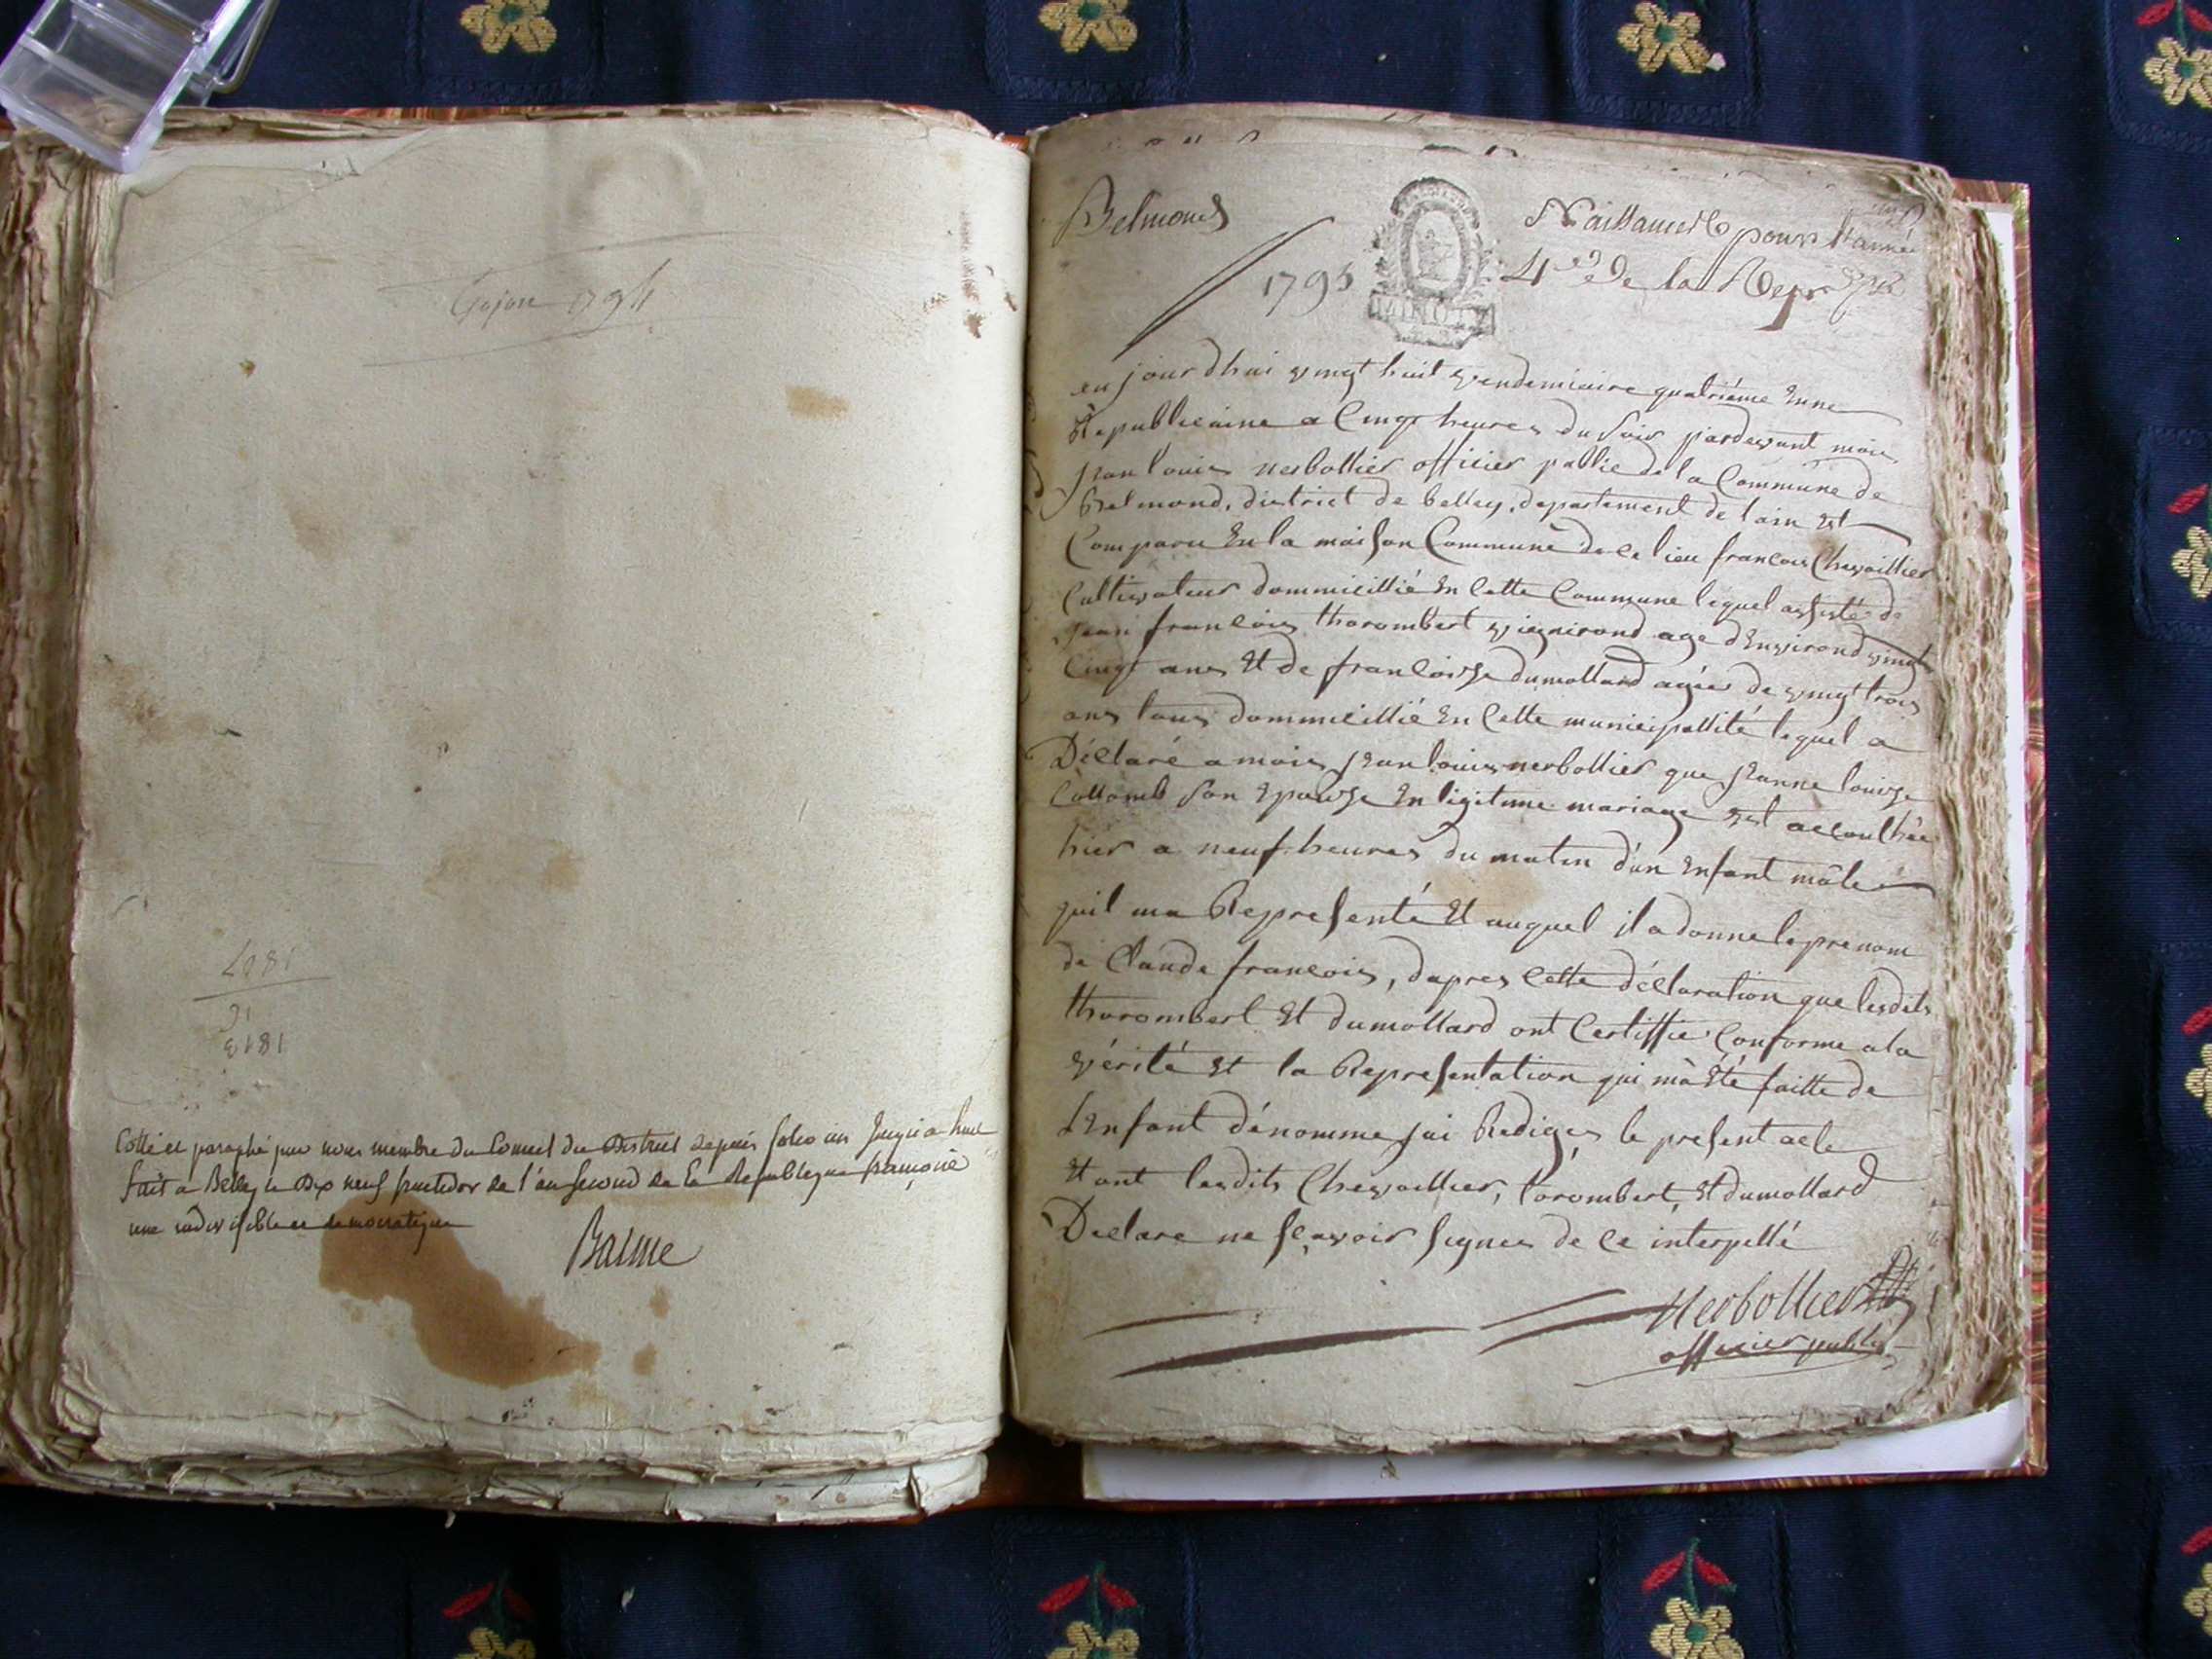 1794
1807
16
1813
Cotté et paraphé par nous membre du Conseil du District depuis folio un Jusqu'a huit
fait a Belley le Dix neuf fructidor de l'an second de la Republique françoise
une indivisible et democratique
Balme
Belmond
Naissances pour l'année
1795
4e De la Rep
en jourdhui vingt huit vendemiaire quatriéme Enne
Republicaine a Cinqt heures du soir pardevant moi
Jean louis nerbollier officier pablic de la Commune de
Belmond, district de belley, departement de lain Est
Comparu En la maison Commune de ce lieu francois Chevaillier
Cultivateur dommicillié En Cette Commune lequel assisté de
Jean francois thorombert vignirond age d'Environd vingt
Cinqt ans Et de francoisse dumollard agée de vingt trois
ans tous dommicillié En Cette municipallité lequel a
Déclaré a moi Jean louis nerbollier que Jeanne louise
Collomb son Epouse En ligitime mariage Est accouchée
hier a neuf heures du matin d'un Enfant mâle
quil ma Représenté Et auquel il a donne le prenom
de Claude francois, dapres Cette déclaration que lesdits
thorombert Et dumollard ont Certiffie Conforme a la
vérité Et la Représentation qui mà Eté faitte de
l'Enfant dénomme jai Rediges le present acte
Et ont lesdits Chevaillier, torombert, Et dumollard
Déclare ne sçavoir signer de ce interpellé
Nerbollier
officier public